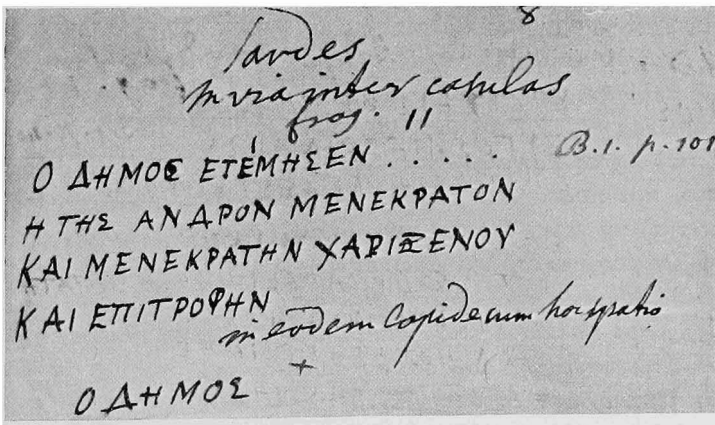 8
Sardes
in via inter casulas
frag. 11
Ο ΔΗΜΟC ΕΤΕΊΜΗΣΕΝ . . . . . B.1. p. 101
Η ΤΗΣ ΑΝΔΡΟΝ ΜΕΝΕΚΡΑΤΟΝ
ΚΑΙ ΜΕΝΕΚΡΑΤΗΝ ΧΑΡΙΞΕΝΟΥ
ΚΑΙ ΕΠΙΤΡΟΦΗΝ
in eodem lapide cum hoc spatio
+
Ο ΔΗΜΟΣ